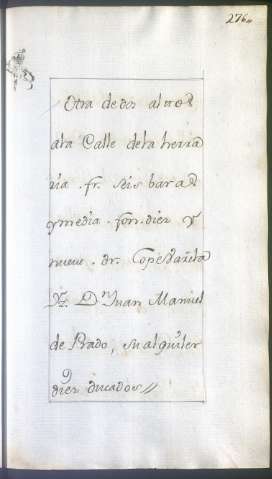 276
Otra de dos altos
a la Calle de la herra
ria . fr. seis baras
y media . fon. diez y
nueve . dr. Lope Garcia
Yz. Dn Juan Manuel
de Prado, su alquiler
diez ducados //